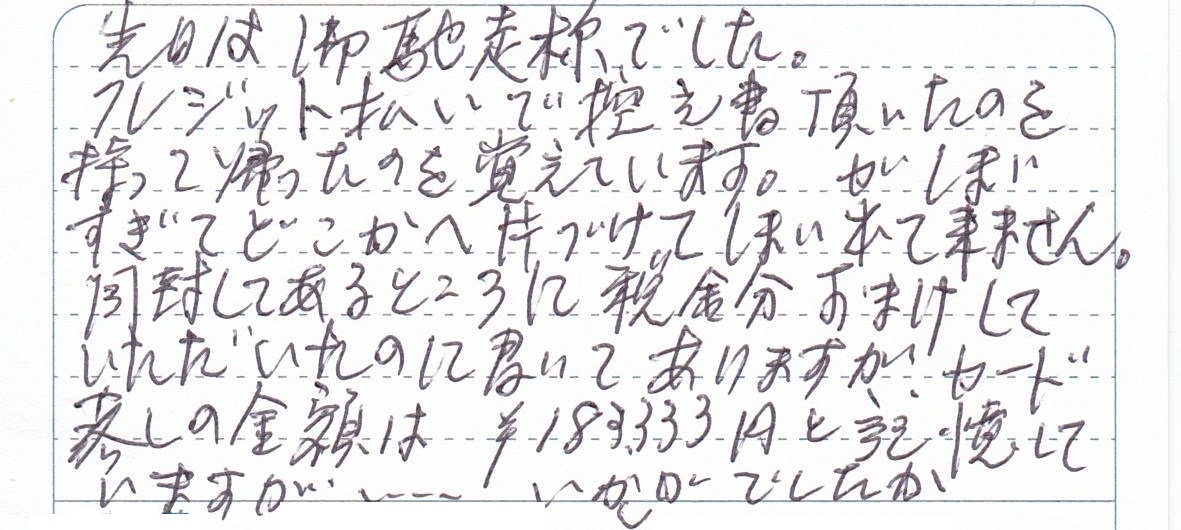 先日は御馳走様でした。
クレジット払いで控え書頂いたのを
持って帰ったのを覚えています。がしまい
すぎてどこかへ片づけてしまい出て来ません。
同封してあるところに税金分おまけして
いただいたのに書いてありますが、カード
落しの金額は ¥183333円と記憶して
いますが、---- いかがでしたか